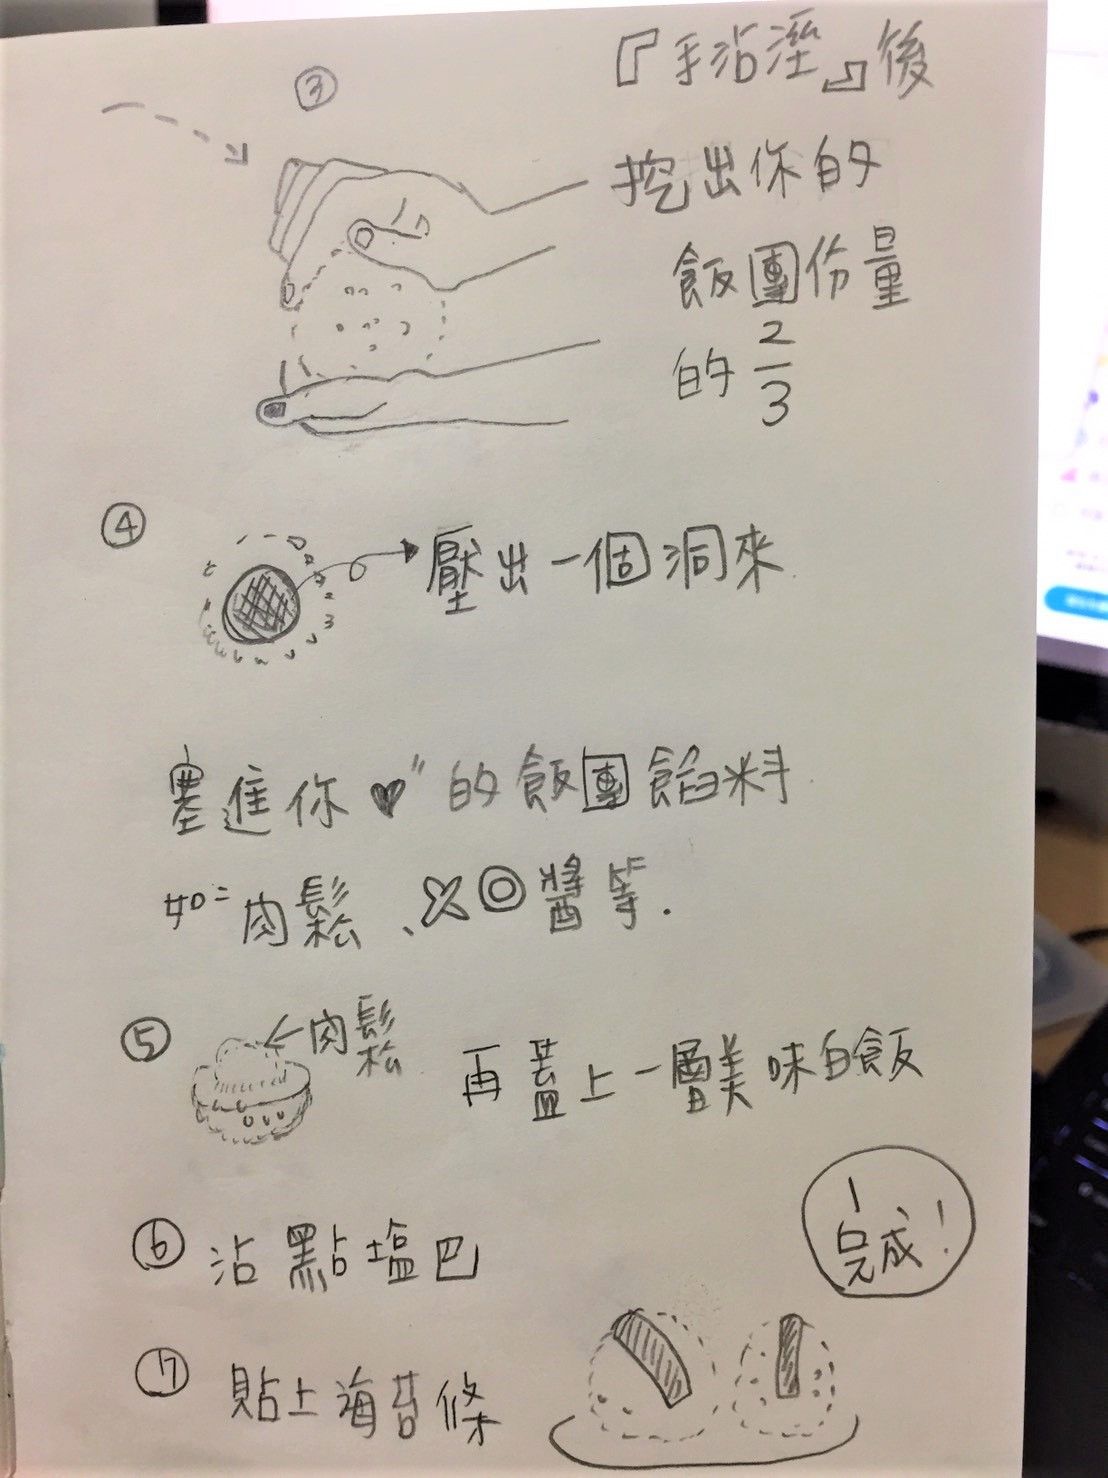 ③
『手沾溼』後
挖出你的
飯團份量
的 2/3
④
壓出一個洞來
塞進你♥"的飯團餡料
如=肉鬆、✕◎醬等.
⑤
←肉鬆
再蓋上一層美味白飯
⑥ 沾點塩巴
完成!
⑦ 貼上海苔條